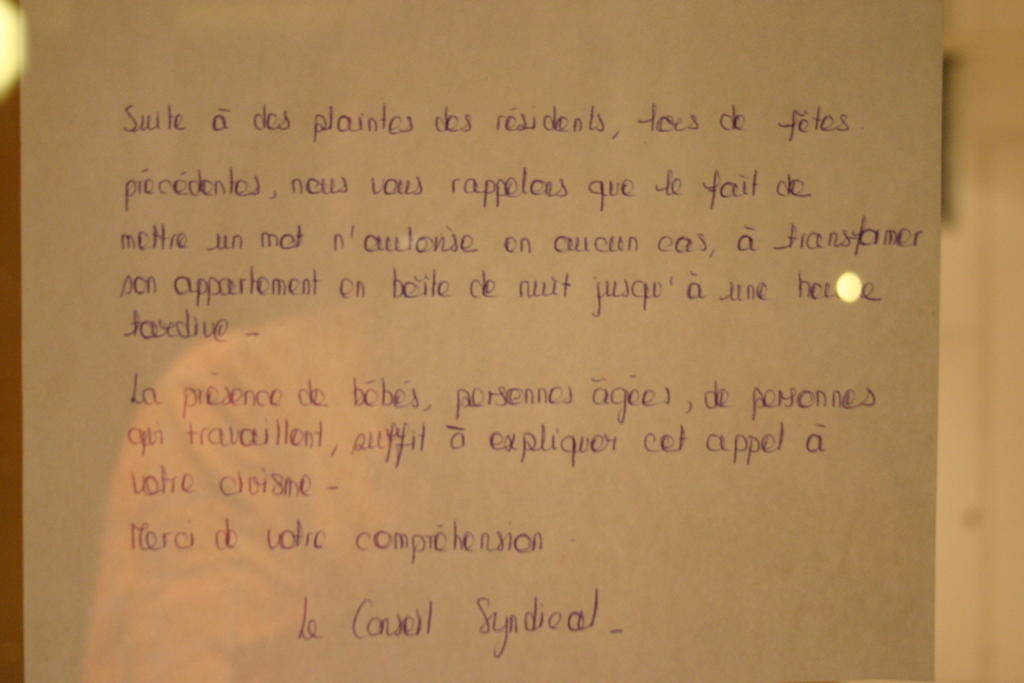 Suite à des plaintes des résidents, lors de fêtes
précédentes, nous vous rappelons que le fait de
mettre un mot n'autorise en aucun cas, à transformer
son appartement en boîte de nuit jusqu'à une heure
tardive -
La présence de bébés, personnes âgées, de personnes
qui travaillent, suffit à expliquer cet appel à
votre civisme -
Merci de votre compréhension.
Le Conseil Syndical -